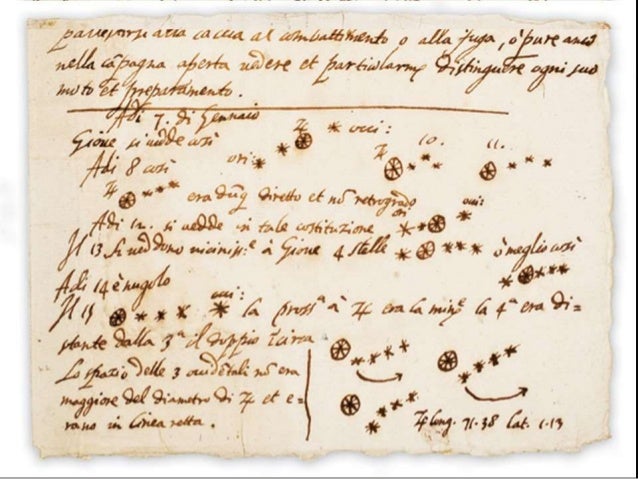 passeportsi alla caccia al combattimento o alla fuga, o pure anco
nella cãpagna aperta uedere et particolarmẽ distinguere ogni suo
moto et preparamento.
Adi 7. di Gennaio
Gioue si uedde cosi ♃ * occi:
Adi 8 cosi ori * ♃ 10. 11.
♃ era dũq diretto et nõ retrogrado
ori occi:
Adi 12. si uedde in tale costituzione
Il 13 si ueddono uicinissᵉ à Gioue 4 stelle * * * * ò meglio cosi
Adi 14 è nugolo
Il 15 * * * * occi: la prossᵃ à ♃ era la minᵉ la 4ᵃ era di=
stante dalla 3ᵃ il doppio ĩcirca
Lo spazio delle 3 occidẽtali nõ era
maggiore del diametro di ♃ et e-
rano in linea retta.
♃ long. 71.38 Lat. 1.13